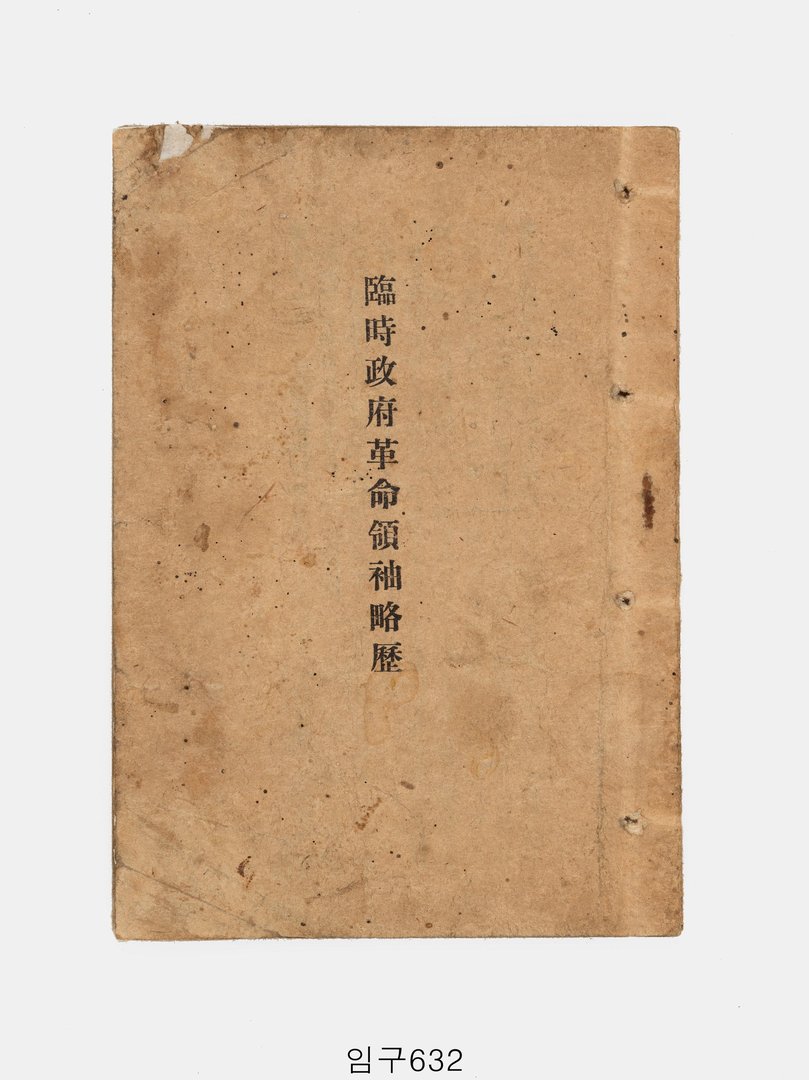 臨時政府革命領袖略歷
임구632